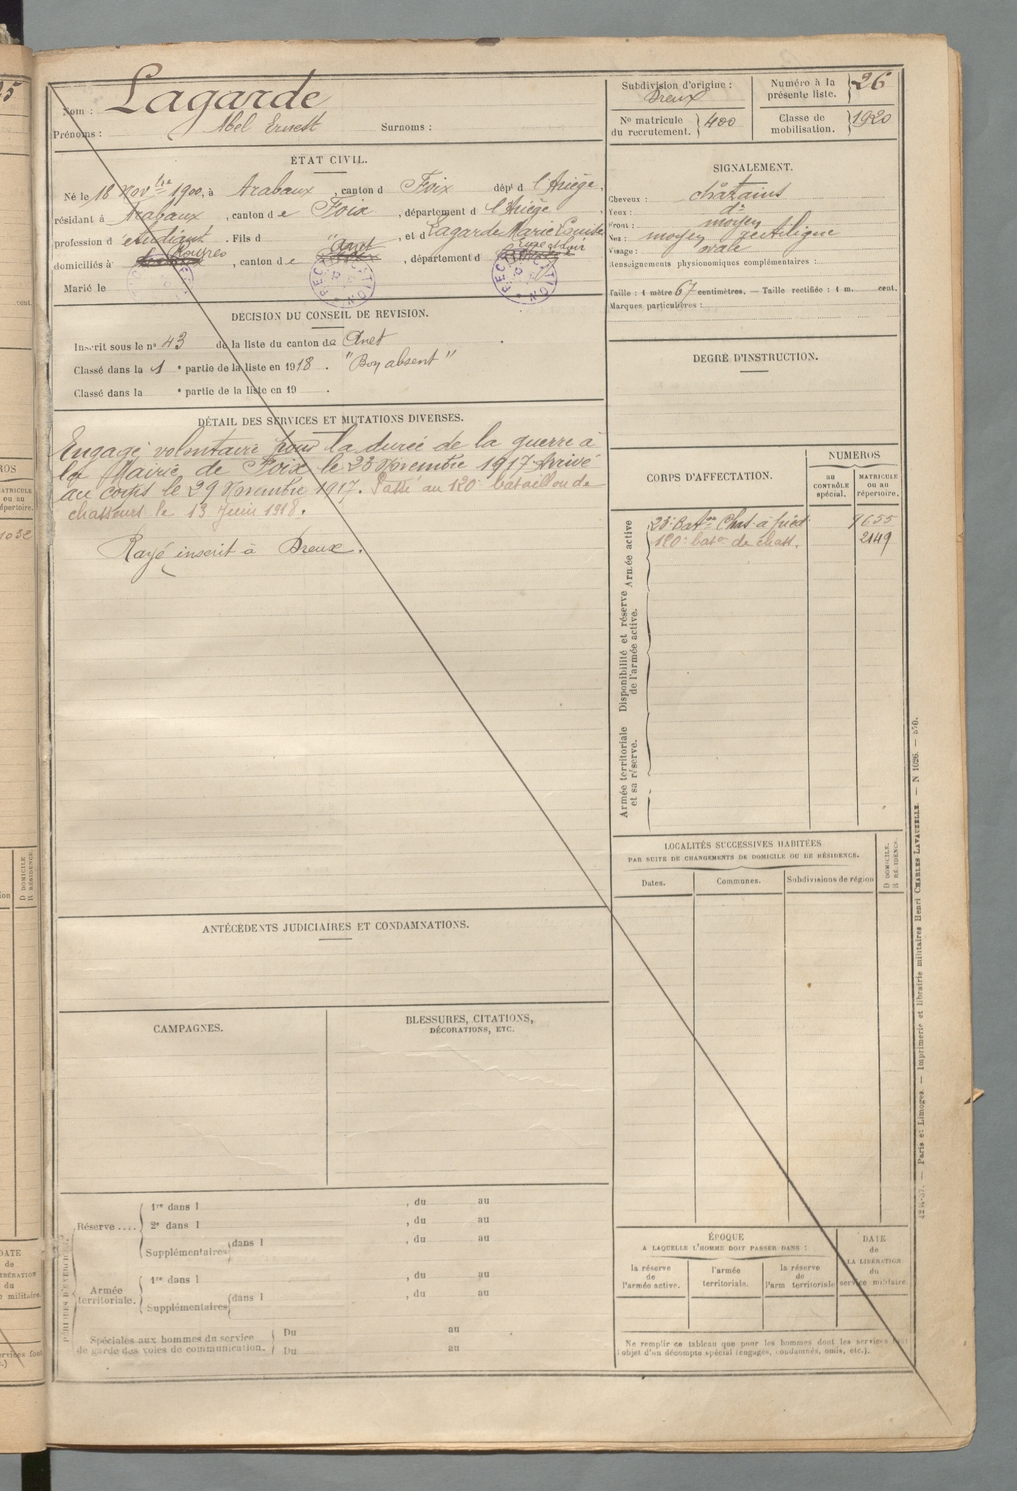 Nom : Lagarde
Prénoms : Abel Ernest Surnoms :
ÉTAT CIVIL.
Né le 18 Nov bre 1900, à Arabaux, canton d Foix dépt d l'Ariège,
résidant à Arabaux, canton de Foix, département d l'Ariège,
profession d'étudiant. Fils d " , et d Lagarde Marie Louise
Rouvres Anet Eure et Loir
domiciliés à , canton de , département d
Marié le
RECTIFICATION
RECTIFICATION
DÉCISION DU CONSEIL DE REVISION.
Inscrit sous le n° 43 de la liste du canton de Anet
Classé dans la 1 e partie de la liste en 1918. "Bon absent"
Classé dans la e partie de la liste en 19 .
DÉTAIL DES SERVICES ET MUTATIONS DIVERSES.
Engagé volontaire pour la durée de la guerre à
la Mairie de Foix le 23 Novembre 1917 Arrivé
au corps le 29 Novembre 1917. Passé au 120e bataillon de
chasseurs le 13 Juin 1918.
Rayé, inscrit à Dreux.
ANTÉCÉDENTS JUDICIAIRES ET CONDAMNATIONS.
CAMPAGNES.
BLESSURES, CITATIONS,
DÉCORATIONS, ETC.
Réserve ....
1re dans l , du au
2e dans l , du au
Supplémentaires dans l , du au
Armée territoriale.
1re dans l , du au
Supplémentaires dans l , du au
Spéciales aux hommes du service
de garde des voies de communication.
Du au
Du au
Subdivision d'origine :
Dreux
Numéro à la présente liste. 26
N° matricule du recrutement. 400
Classe de mobilisation. 1920
SIGNALEMENT.
Cheveux : châtains
Yeux : do
Front : moyen
Nez : moyen rectiligne
Visage : ovale
Renseignements physionomiques complémentaires :
Taille : 1 mètre 67 centimètres. — Taille rectifiée : 1 m. cent.
Marques particulières :
DEGRÉ D'INSTRUCTION.
CORPS D'AFFECTATION.
NUMÉROS
au CONTRÔLE spécial.
MATRICULE ou au répertoire.
Armée active
23e Baton Chas. à pied 9655
120e baton de chass. 2149
Disponibilité et réserve de l'armée active.
Armée territoriale et sa réserve.
LOCALITÉS SUCCESSIVES HABITÉES
PAR SUITE DE CHANGEMENTS DE DOMICILE OU DE RÉSIDENCE.
Dates. Communes. Subdivisions de région
D DOMICILE
R RÉSIDENCE
ÉPOQUE
A LAQUELLE L'HOMME DOIT PASSER DANS :
la réserve de l'armée active.
l'armée territoriale.
la réserve de l'arm territoriale
DATE de LA LIBÉRATION du service militaire.
Ne remplir ce tableau que pour les hommes dont les services font
l'objet d'un décompte spécial (engagés, condamnés, omis, etc.).
Paris et Limoges. — Imprimerie et librairie militaires Henri CHARLES LAVAUZELLE. — N 1026.